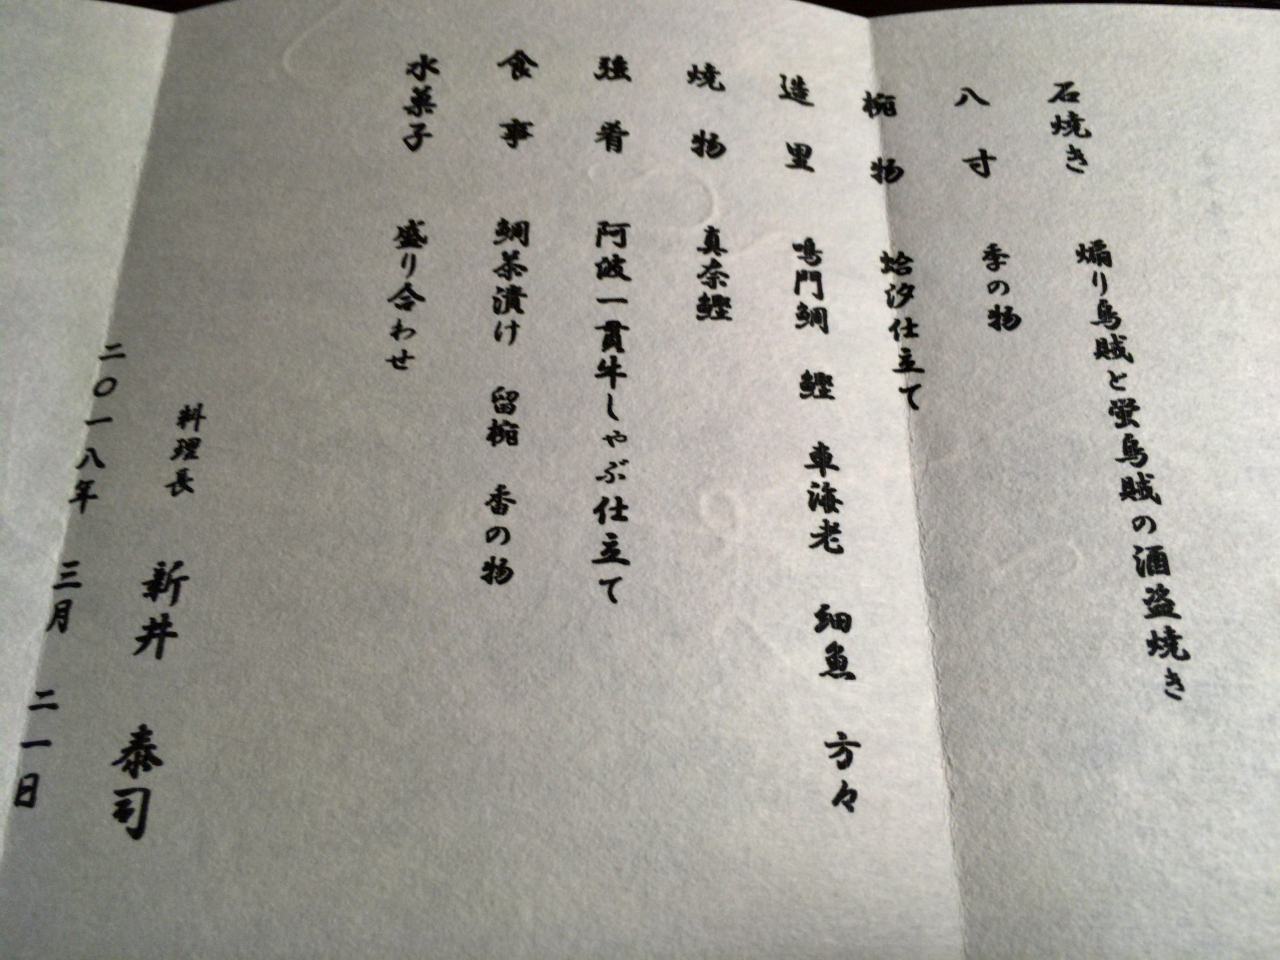 石焼き 煽り烏賊と蛍烏賊の酒盗焼き
八寸 季の物
椀物 蛤汐仕立て
造里 鳴門鯛 鰹 車海老 細魚 方々
焼物 真奈鰹
強肴 阿波一貫牛しゃぶ仕立て
食事 鯛茶漬け 留椀 香の物
水菓子 盛り合わせ
料理長 新井 泰司
二〇一八年 三月 二一日